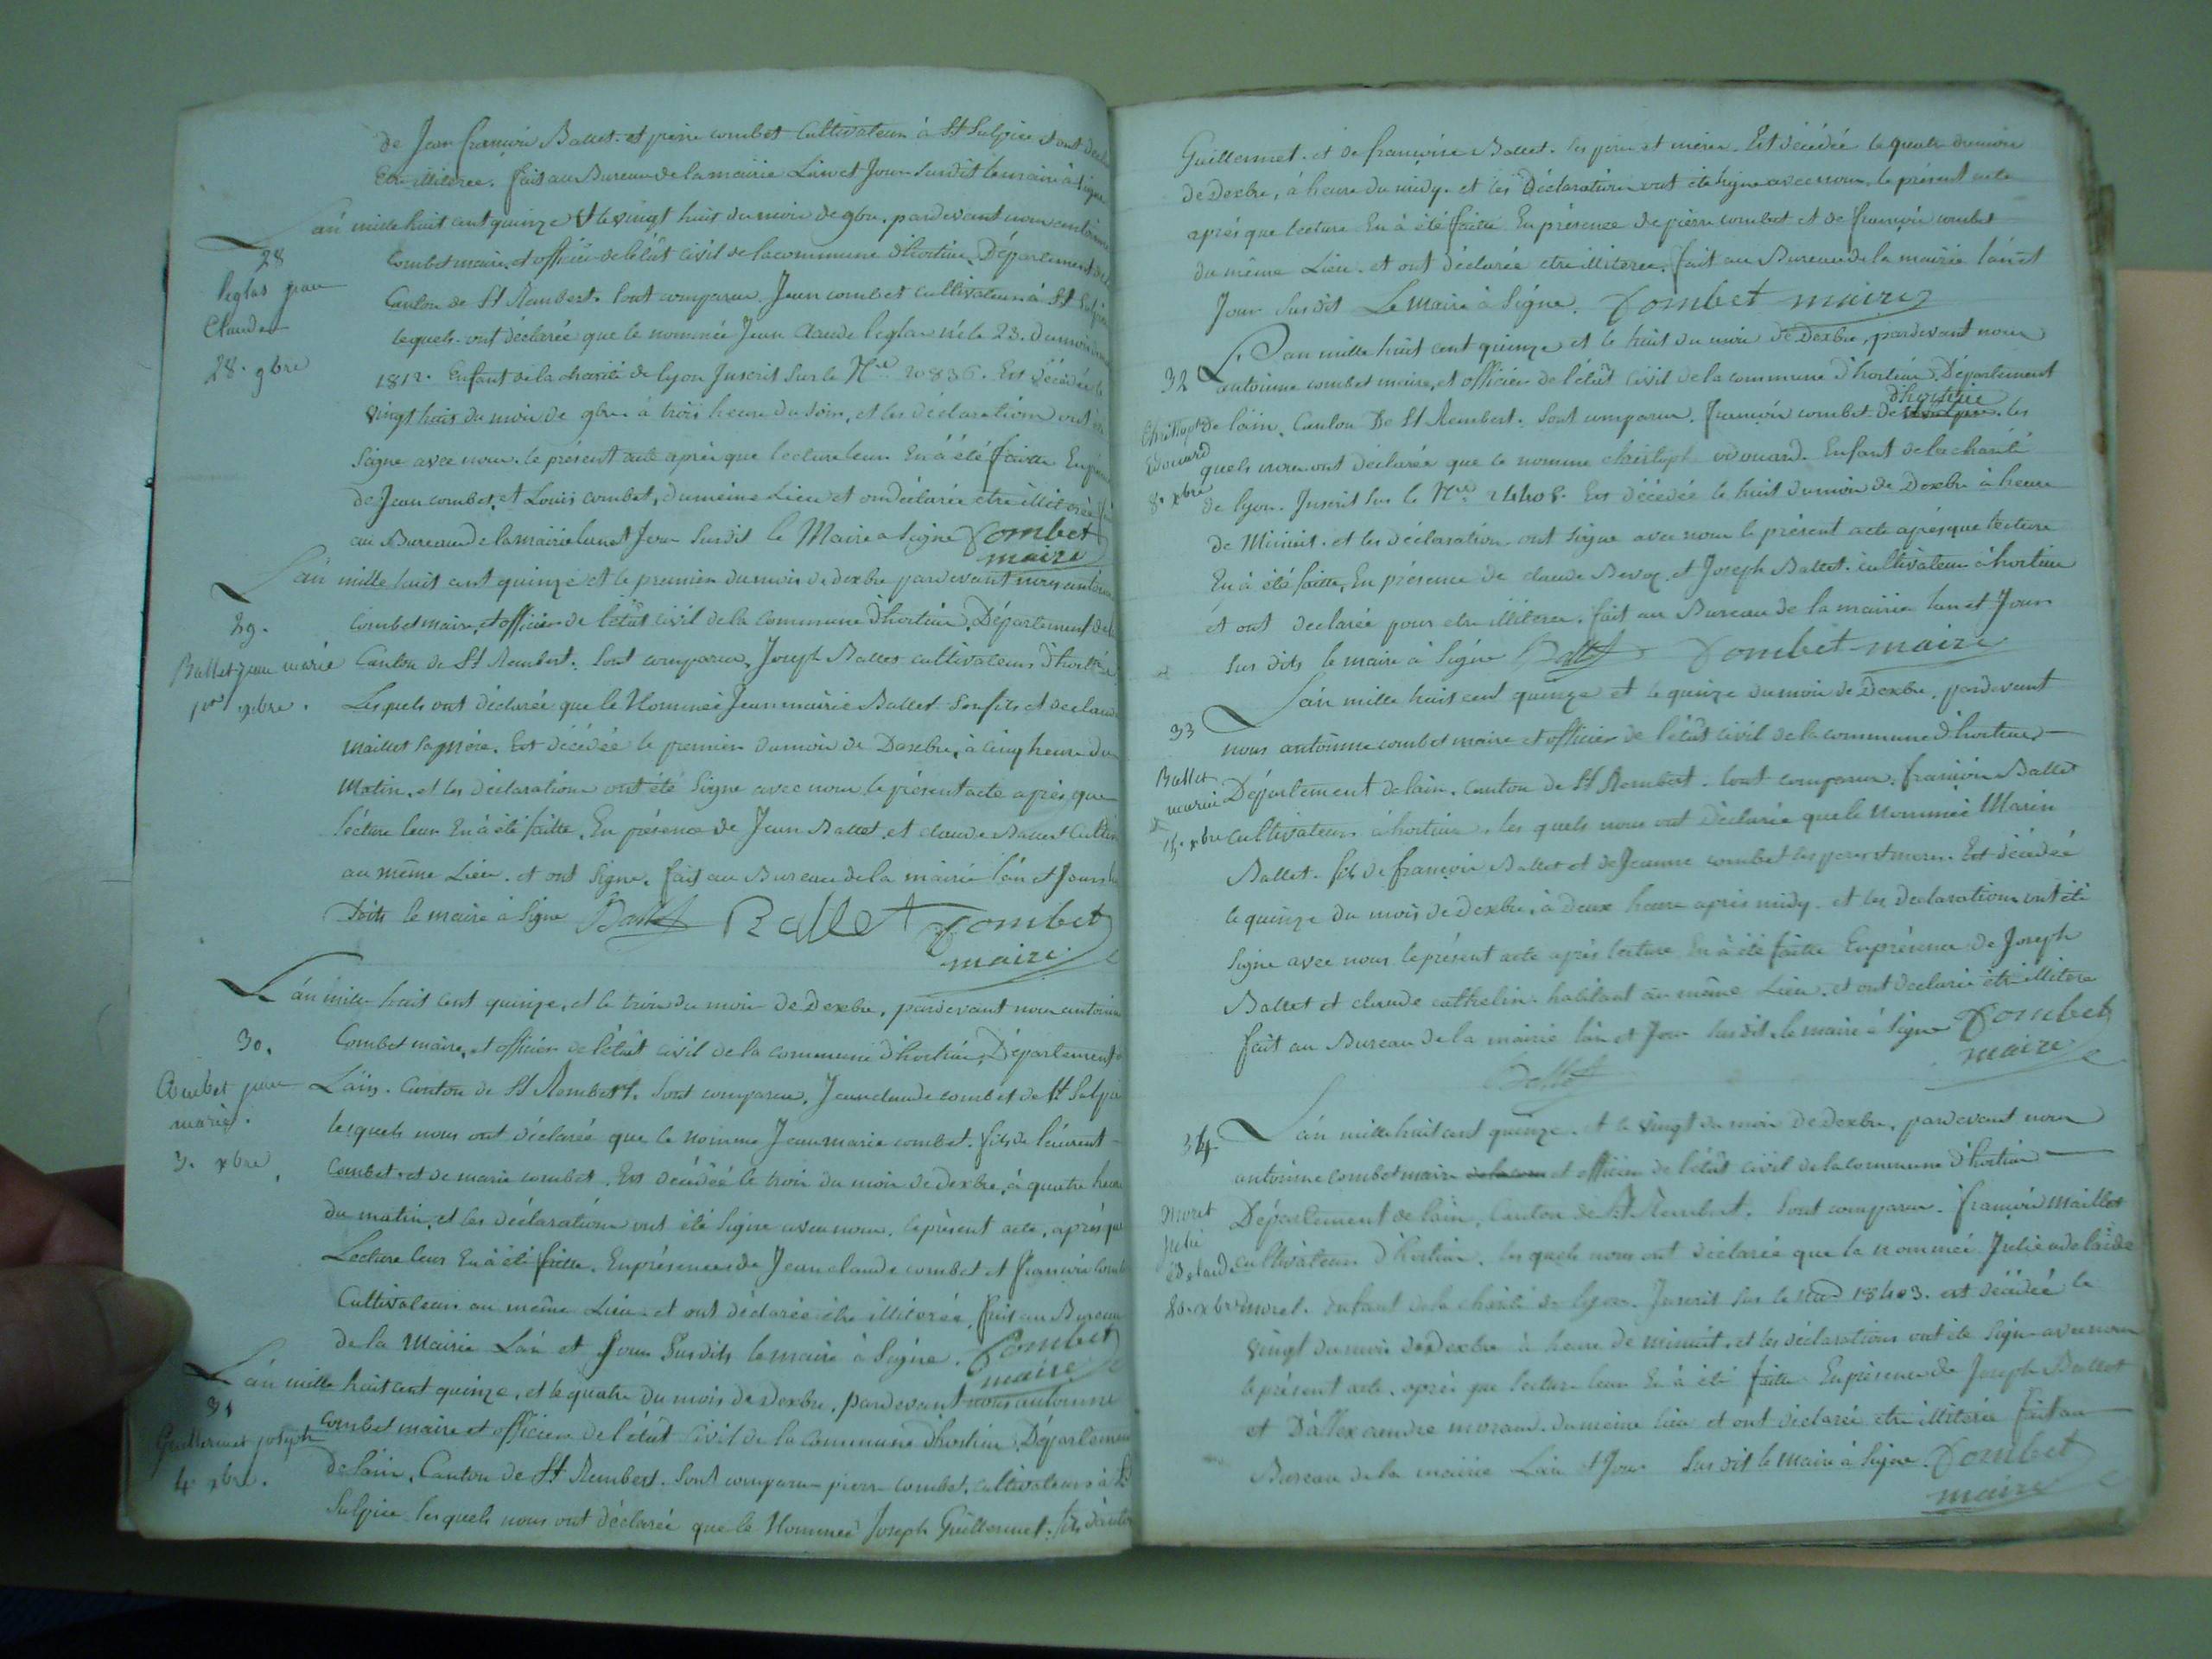 de Jean francois Ballet. et pierre combet Cultivateur à St Sulpice et ont
Etre illiteree. fait au Bureau de la mairie Lieu et Jour Susdit le maire à Signe
L'an mille huit cent quinze et le vingt huit du mois de 9bre. pardevant nous antoinne
28
Combet maire, et officier de l'état civil de la commune d'hortiaux, Département
leglas jean
Claude
Canton de St Rembert. Sont comparu Jean combet cultivateur à St Sulpice
28. 9bre
lequels ont déclarée que le nommée Jean Claude leglas né le 23. du mois
1812. Enfant de la charité de lyon Juscrit Sur le N° 20836. Est décédée le
vingt huit du mois de 9bre à trois heure du Soir, et les déclaration ont été
Signe avec nous. le présent acte après que lecture leur En à été faitte En
de Jean combet, et Louis combet, du même Lieu et on déclarée etre illiteree
au Bureau de la mairie lan et Jour Susdit le Maire a Signe Combet
maire
L'an mille huit cent quinze et le premier du mois de dexbre pardevant nous antoinne
29.
Combet maire, et officier de l'état civil de la commune d'hortiaux, Département de
Ballet jean marie
Canton de St Rembert. Sont comparu, Joseph Ballet cultivateur d'hortiaux
1er xbre.
Lesquels ont déclarée que le Nommée Jean marie Ballet Son fils et de claud
Maillet Sa mére. Est décédée le premier du mois de Dexbre, à cinq heure du
Matin, et les déclaration ont été Signe avec nous le présent acte après que
lecture leur En à été faitte, En présence de Jean Ballet et claude Ballet Cultiv
au même Lieu. et ont Signe. fait au Bureau de la mairie l'an et Jour
dits le maire à Signe Ballet Ballet Combet
maire
L'an mille huit cent quinze, et le trois du mois de Dexbre, pardevant nous antoinne
30.
Combet maire, et officier de l'état civil de la commune d'hortiaux, Département
Combet jean
marie.
L'ain. Canton de St Rembert. Sont comparu, Jean claude combet de St Sulpice
3. xbre
lesquels nous ont déclarée que le nomme Jean marie combet. fils de laurent
Combet. et de marie combet. Est décédée le trois du mois de dexbre, à quatre heure
du matin, et les déclaration ont été Signe avec nous, le présent acte, après que
Lecture leur En à été faitte. En présence de Jean claude combet et françois Comb
Cultivateur au même Lieu et ont déclarée etre illiterée, fait au Bureau
de la Mairie L'an et Jour Susdits le maire à Signe. Combet
maire
L'an mille huit cent quinze, et le quatre du mois de Dexbre, pardevant nous antoinne
31
combet maire et officier de l'état civil de la commune d'hortiaux, Département
Guillermet joseph
de l'ain, Canton de St Rembert. Sont comparu pierre combet, cultivateur à St
4. xbre.
Sulpice lesquels nous ont déclarée que le Nommée Joseph Guillermet. fils
Guillermet. et de françoise Ballet. les père et mère. Est décédée le quatre du mois
de Dexbre, à heure du midy. et les Déclaration ont été Signe avec nous, le présent acte
après que lecture En à été faitte En présence de pierre combet et de françois combet
du même Lieu. et ont déclarée etre illiteree. fait au Bureau de la mairie l'an et
Jour Susdit Le Maire à Signe. Combet maire
L'an mille huit cent quinze et le huit du mois de Dexbre, pardevant nous
32
antoinne combet maire, et officier de l'état civil de la commune d'hortiaux, Département
d'hortiaux
Christoph
Edouard
8. xbre
de l'ain, Canton De St Rembert. Sont comparu. françois combet de St Sulpice. les
quels nous ont déclarée que le nomme christoph edouard. Enfant de la charité
de lyon. Juscrit Sur le N° 24408. Est décédée le huit du mois de Dexbre à heure
de Minuit. et les déclaration ont Signe avec nous le présent acte après que lecture
En à été faitte, En présence de claude et Joseph Ballet. cultivateur à hortiaux
et ont declarée pour etre illiteree. fait au Bureau de la mairie lan et Jour
Susdits le maire à Signe Ballet Combet maire
L'an mille huit cent quinze et le quinze du mois de Dexbre, pardevant
33
nous antoinne combet maire et officier de l'état civil de la commune d'hortiaux
Ballet
marin
Département de l'ain. canton de St Rembert. Sont comparu. françois Ballet
15. xbre
cultivateur à hortiaux. les quels nous ont déclarée que le nommée Marin
Ballet. fils de françois Ballet et de Jeanne combet les père et mère. Est décédée
le quinze du mois de Dexbre, à Deux heure après midy. et les Declaration ont été
Signe avec nous le présent acte après lecture En à été faitte En présence de Joseph
Ballet et claude cathelin. habitant au même Lieu. et ont declarée etre illitere
fait au Bureau de la mairie l'an et Jour Susdit le maire à Signe Combet
maire
Ballet
34
L'an mille huit cent quinze. et le vingt du mois de Dexbre, pardevant nous
antoinne combet maire de la com et officier de l'état civil de la commune d'hortiaux
moret
julie
adelaide
20. xbre
Département de l'ain, Canton de St Rembert. Sont comparu. françois Maillet
cultivateur d'hortiaux. les quels nous ont déclarée que la nommée Julie adelaide
moret. Enfant de la charité de lyon. Juscrit Sur le 18403. est décédée le
vingt du mois de Dexbre à heure de minuit. et les déclarations ont été Signe avec nous
le présent acte. après que lecture leur En à été faitte En présence de Joseph Ballet
et D'allexandre moraux. du même lieu et ont déclarée etre illiterée fait au
Bureau de la mairie Lieu et Jour Susdit le Maire à Signe. Combet
maire